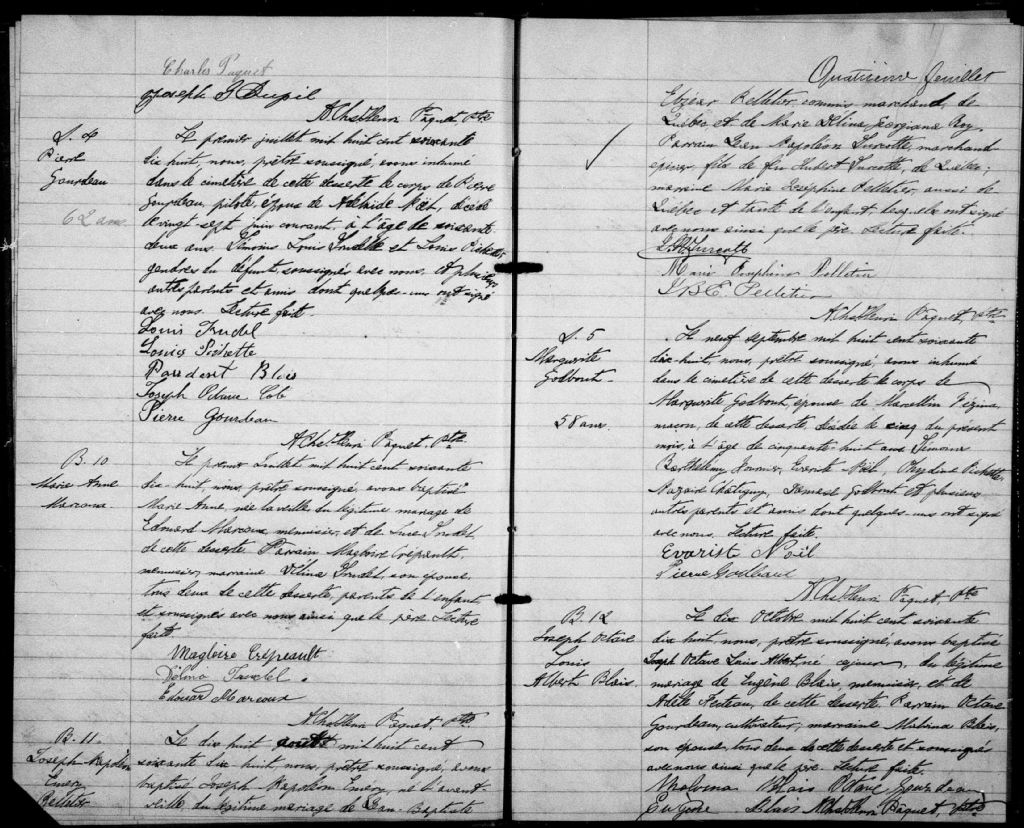 Charles Paquet
Joseph G Dupil
N Chs Henri Paquet, Ptre
S. 4
Pierre
Gourdeau
62 ans
Le premier juillet mil huit cent soixante
dix huit, nous, prêtre soussigné, avons inhumé
dans le cimetière de cette desserte le corps de Pierre
Gourdeau, pilote, époux de Adelaide Noël, décédé
le vingt sept juin courant, à l'âge de soixante
deux ans. Témoins Louis Trudelle et Louis Pichette,
gendres du défunt, soussignés avec nous, et plusieurs
autres parents et amis dont quelques-uns ont signé
avec nous. Lecture faite.
Louis Trudel
Louis Pichette
Blais
Joseph
Pierre Gourdeau
N Chs Henri Paquet, Ptre
B. 10
Marie Anne
Marcoux
Le premier Juillet mil huit cent soixante
dix-huit, nous, prêtre soussigné, avons baptisé
Marie Anne, née la veille du légitime mariage de
Edouard Marcoux menuisier, et de Luce Trudel,
de cette desserte. Parrain Magloire Crépeault,
menuisier, marraine Délima Trudel, son épouse,
tous deux de cette desserte, parents de l'enfant,
et soussignés avec nous ainsi que le père. Lecture
faite
Magloire Crépeault
Délima Trudel.
Edouard Marcoux
N Chs Henri Paquet, Ptre
B. 11
Joseph Napoléon
Emery
Pelletier
Le dix huit août mil huit cent
soixante dix huit, nous, prêtre soussigné, avons
baptisé Joseph Napoléon Emery, né l'avant
veille du légitime mariage de Jean-Baptiste
Quatrième feuillet
Elzéar Pelletier commis marchand, de
Québec et de Marie Délina Georgiana Roy.
Parrain Jean Napoléon Turcotte, marchand
épicier, fils de feu Hubert Turcotte, de Québec;
marraine Marie Josephine Pelletier, aussi de
Québec et tante de l'enfant, lesquels ont signé
avec nous ainsi que le père. Lecture faite.
J. N. Turcotte
Marie Josephine Pelletier
J B E Pelletier
N Chs Henri Paquet, Ptre
S. 5
Marguerite
Godbout
58 ans
Le neuf septembre mil huit cent soixante
dix-huit, nous, prêtre soussigné, avons inhumé
dans le cimetière de cette desserte le corps de
Marguerite Godbout, épouse de Marcellin Vézina,
maçon, de cette desserte, décédée le cinq du présent
mois, à l'âge de cinquante-huit ans. Témoins
Barthélemy Fournier, Evariste Noël, Onézime Pichette,
Nazaire Chatigny, Damase Godbout et plusieurs
autres parents et amis dont quelques-uns ont signé
avec nous. Lecture faite.
Evarist Noël
Pierre Godbout
N Chs Henri Paquet, Ptre
B. 12
Joseph Octave
Louis
Albert Blais
Le dix Octobre mil huit cent soixante
dix huit, nous, prêtre soussigné avons baptisé
Joseph Octave Louis Albert, né ce jour, du légitime
mariage de Eugène Blais, menuisier, et de
Adèle Fecteau, de cette desserte. Parrain Octave
Gourdeau, cultivateur; marraine Malvina Blais,
son épouse, tous deux de cette desserte et soussignés
avec nous ainsi que le père. Lecture faite.
Malvina Blais Octave Gourdeau
Eugène Blais N Chs Henri Paquet, Ptre